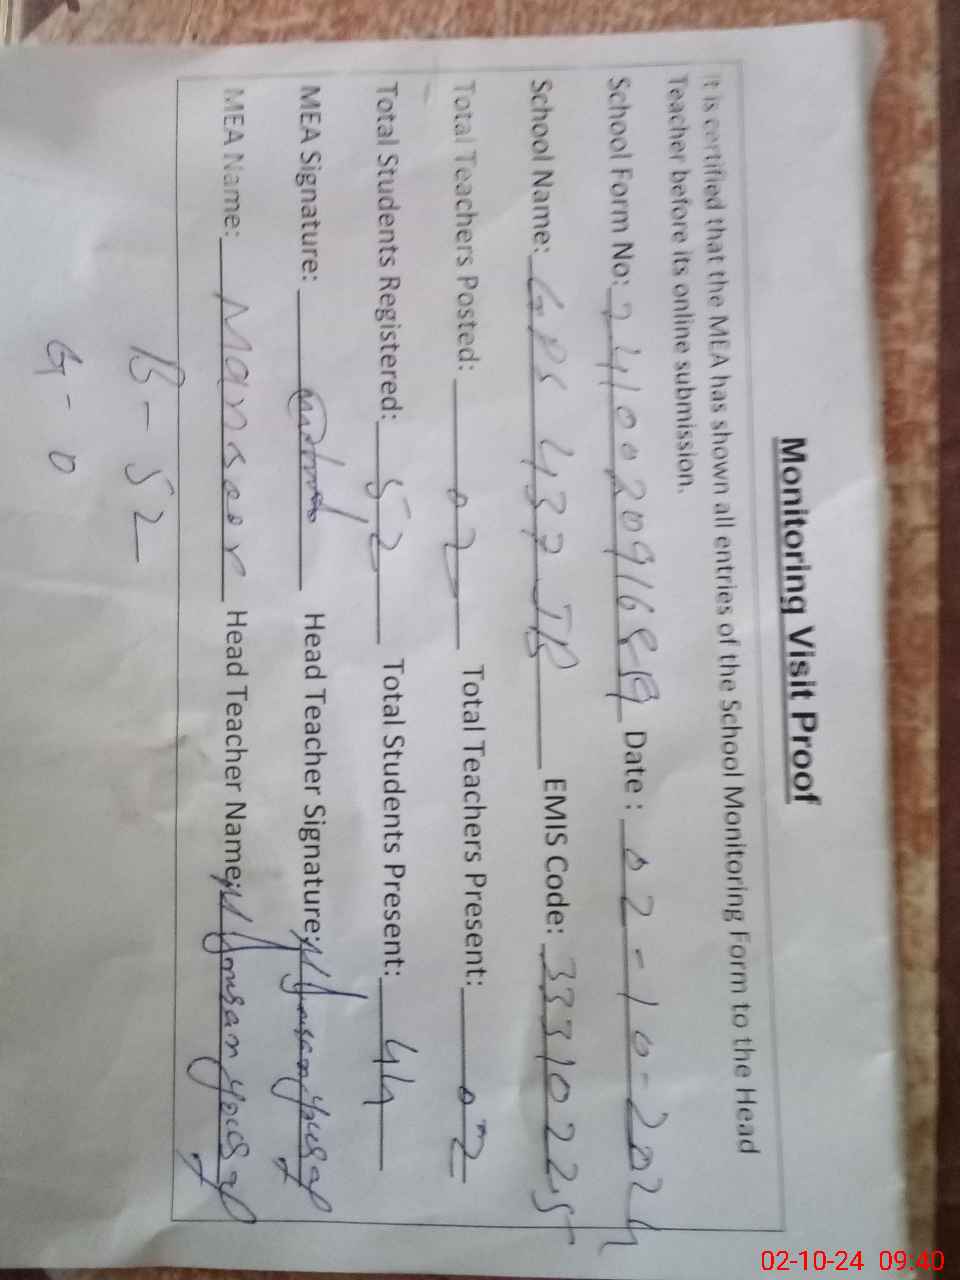 Monitoring Visit Proof
It is certified that the MEA has shown all entries of the School Monitoring Form to the Head
Teacher before its online submission.
School Form No: Date : 02-10-2024
School Name: GPS 437 JB EMIS Code: 33310225
Total Teachers Posted: 02 Total Teachers Present: 02
Total Students Registered: 52 Total Students Present: 44
MEA Signature: Head Teacher Signature:
MEA Name: Mansoor Head Teacher Name:
B - 52
G - 0
02-10-24 09:40